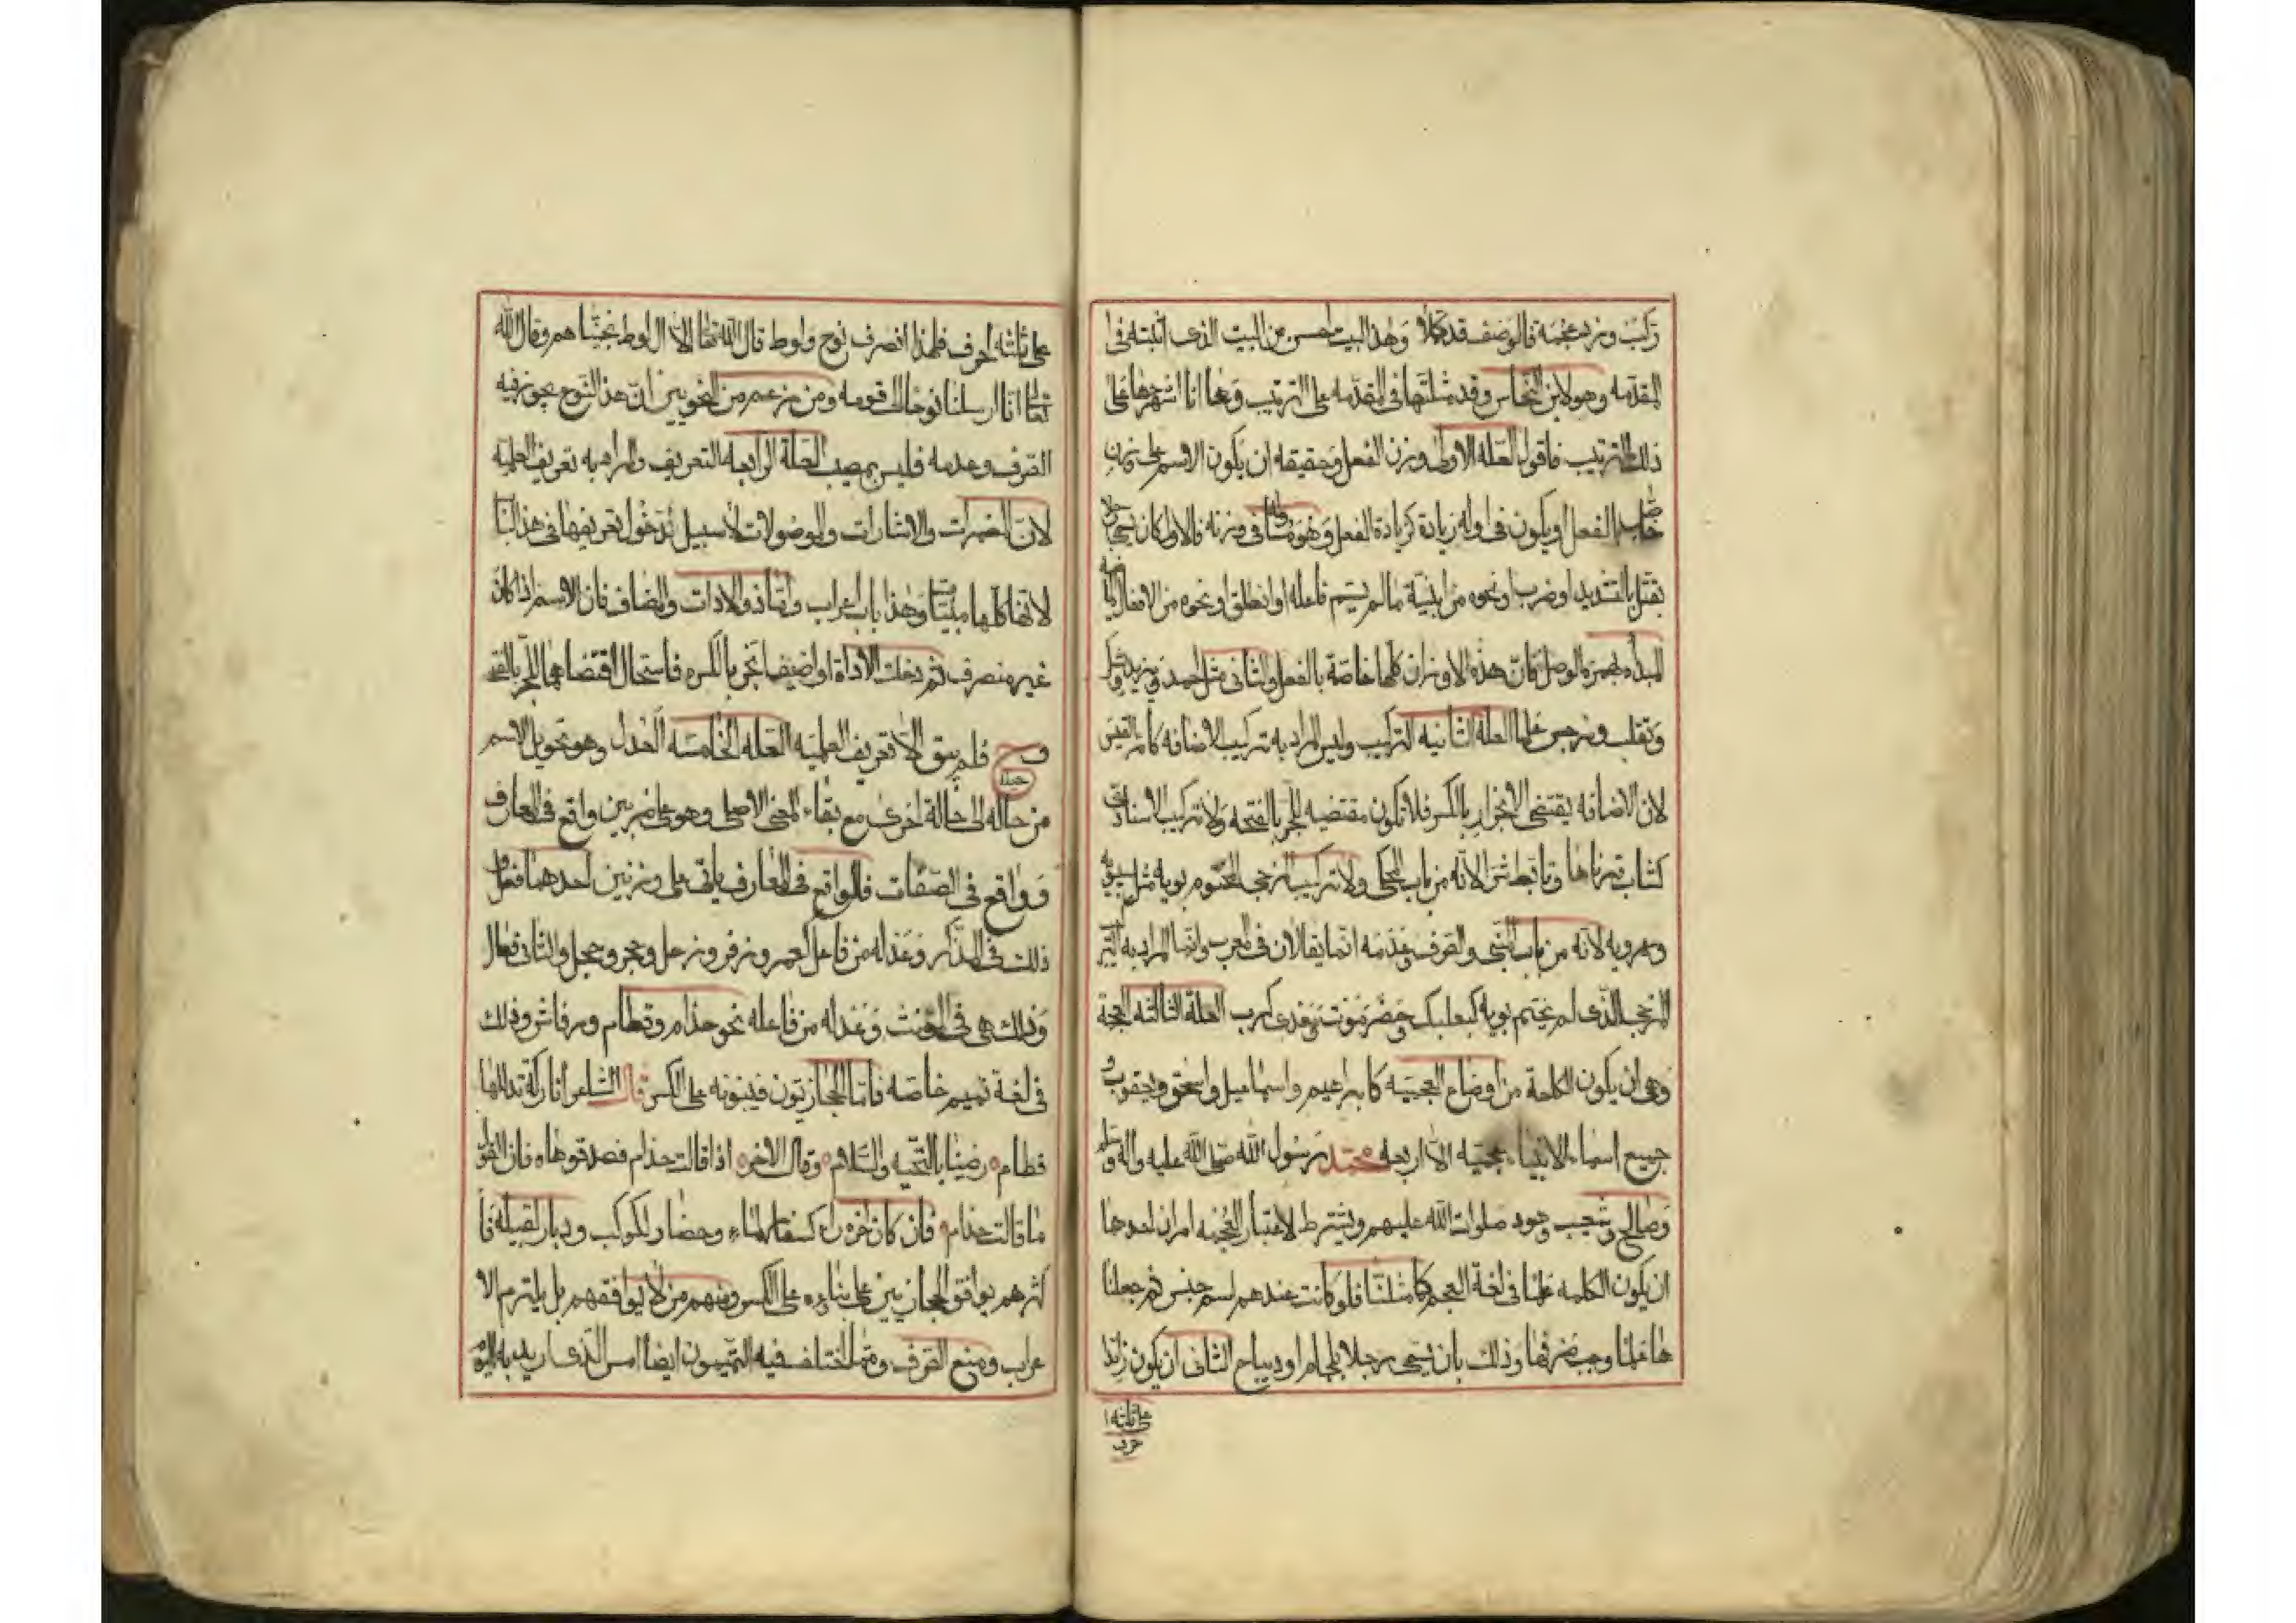 ركب وزد عجمة فالوصف قد كملا وهذا البيت احسن من البيت الذى اثبته فى
المقدمه وهو لابن النحاس وقد مثلتها فى المقدمه على الترتيب وها انا اشرحها على
ذلك الترتيب فاقول العله الاولى وزن الفعل وحقيقته ان يكون الاسم على وزن
خاص بالفعل او يكون فى اوله زيادة كزيادة الفعل وهو مساو له فى وزنه فالاول كان يسمى رجلا
بقتل بالتشديد او ضرب او نحوه من ابنية ما لم يسم فاعله او انطلق او نحوه من الافعال الماضيه
المبدأه بهمزة الوصل فان هذه الاوزان كلها خاصة بالفعل والثانى مثل احمد ويزيد ويشكر
وتغلب ونرجس علما العلة الثانيه التركيب وليس المراد به تركيب الاضافه كامرء القيس
لان الاضافه يقتضى الانجرار بالكسر فلا تكون مقتضيه للجر بالفتحه ولا تركيب الاسناد
كشاب قرناها وتابط شرا لانه من باب المحكى ولا تركيب المزجى المختوم بويه مثل سيبويه
وعمرويه لانه من باب المبنى والصرف وعدمه انما يقالان فى المعرب وانما المراد به التركيب
المزجى الذى لم يختم بويه كبعلبك وحضرموت ومعدى كرب العلة الثالثه العجمة
وهى ان يكون الكلمة من اوضاع العجميه كابراهيم واسماعيل واسحق ويعقوب و
جميع اسماء الانبياء عجميه الا اربعه محمد رسول الله صلى الله عليه واله وسلم
وصالح وشعيب وهود صلوات الله عليهم ويشترط لاعتبار العجمه امران احدها
ان يكون الكلمه علما فى لغة العجم كما مثلنا فلو كانت عندهم اسم جنس ثم جعلنا
ها علما وجب صرفها وذلك بان يسمى رجلا بلجام او ديباج الثانى ان يكون زائدا
على ثلثه ا
حرف
على ثلثه احرف فلهذا انصرف نوح ولوط قال الله تعا الا ال لوط نجيناهم وقال الله
تعالى انا ارسلنا نوحا الى قومه ومن زعم من النحويين ان هذا النوع يجوز فيه
الصرف وعدمه فليس بمصيب العلة الرابعه التعريف والمراد به تعريف العلميه
لان المضمرات والاشارات والموصولات لا سبيل لدخول تعريفها فى هذا البا
لانها كلها مبنيات وهذا باب اعراب واما ذو الادات والمضاف فان الاسم اذا كان
غير منصرف ثم دخلت الاداة او اضيف انجر بالكسره فاستحال اقتضاءهما للجر بالفتحه
وح فلم يبق الا تعريف العلميه العله الخامسه العدل وهو تحويل الاسم
من حاله الى حالة اخرى مع بقاء المعنى الاصلى وهو على ضربين واقع فى المعارف
وواقع فى الصفات فالواقع فى المعارف ياتى على وزنين احدهما فعل و
ذلك فى المذكر وعدله من فاعل كعمر وزفر وزحل وجمح وجحى والثانى فعال
وذلك هى فى المؤنث وعدله من فاعله نحو حذام وقطام ورقاش وذلك
فى لغة تميم خاصه فاما الحجازيون فيبنونه على الكسر قال الشاعر اتاركة تدللها
قطام ه رضينا بالتحيه والسلام ه وقال الاخر ه اذا قالت حذام فصدقوها ه فان القول
ما قالت حذام ه فان كان اخره راء كسفار لماء وحضار لكوكب ووبار لقبيله فا
كثرهم يوافق الحجازيين على بناءه على الكسر ومنهم من لا يوافقهم بل يلتزم الا
عراب ومنع الصرف ومما اختلف فيه التميميون ايضا امس الذى اريد به اليوم